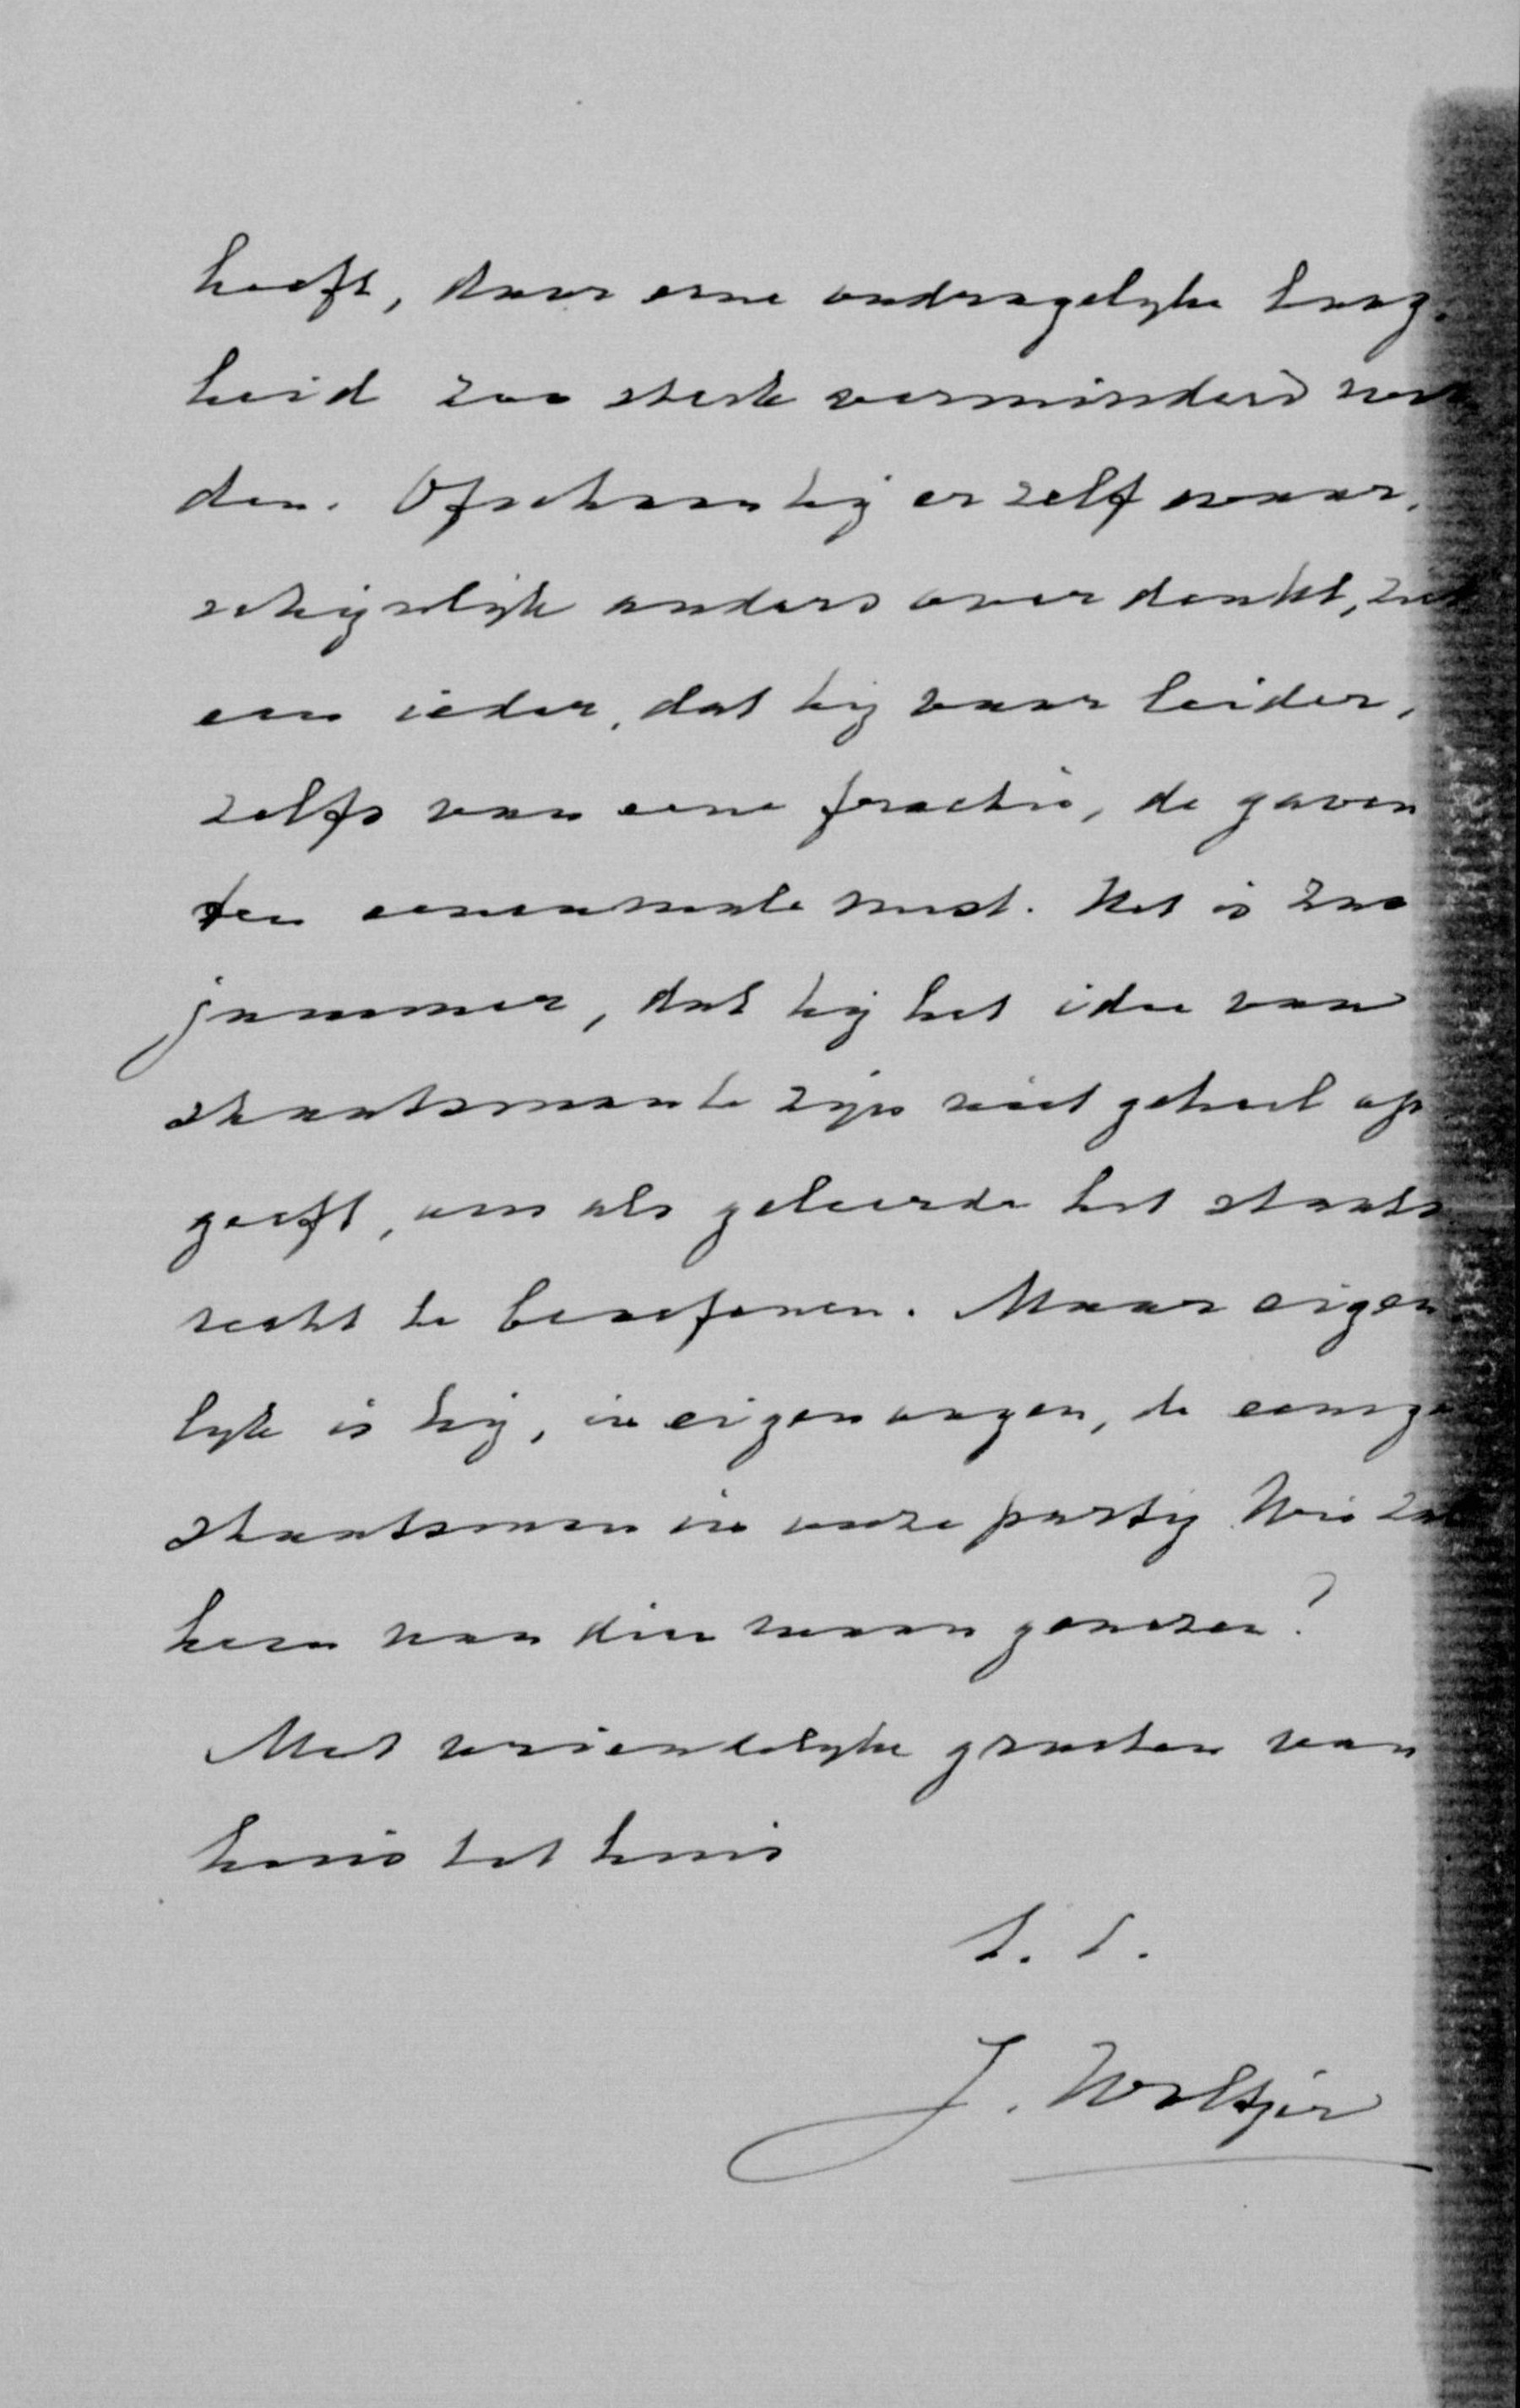 heeft, door eene ondragelijke hoog-
heid zoo sterk verminderd wor
den. Ofschoon hij er zelf waar,
schijnlijk anders over denkt, ziet
een ieder, dat hij voor leider,
zelfs van eene fractie, de gaven
ten eenenmale mist. Het is zoo
jammer, dat hij het idee van
staatsman te zijn niet geheel op
geeft, om als geleerde het staats
recht te beoefenen. Maar eigen
lijk is hij, in eigen oogen, de eenige
staatsman in onze partij. Wie zal
hem van dien waan genezen?
Met vriendelijke groeten van
huis tot huis
t. t.
J. Woltjer